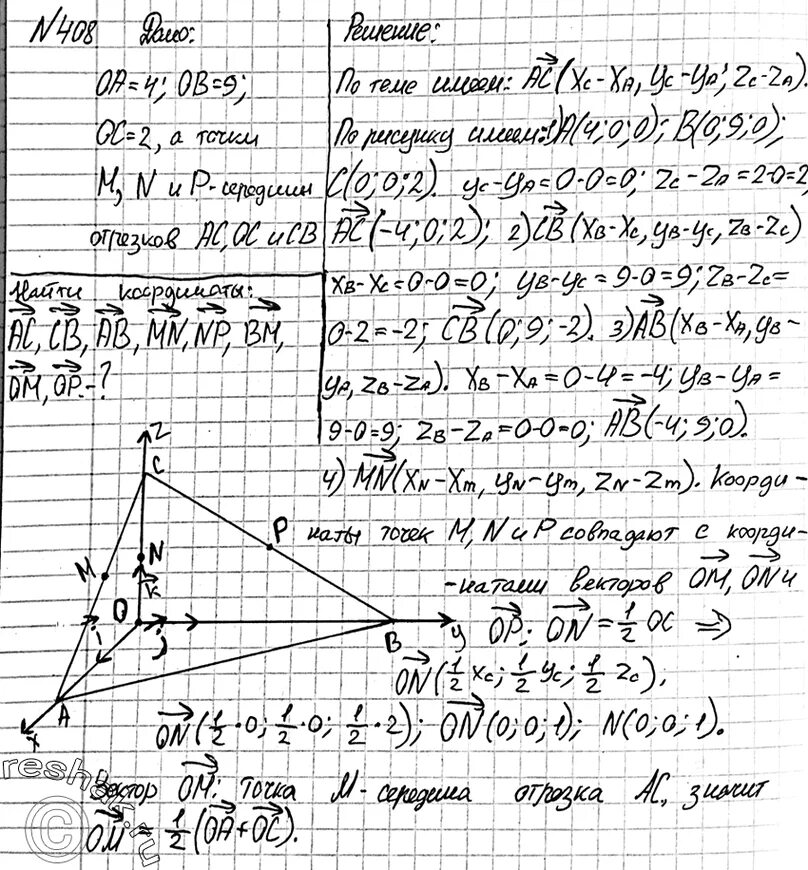 N408 Дано:
OA=4; OB=9;
OC=2, а точки
M, N и P-середины
отрезков AC, OC и CB
Найти координаты:
AC, CB, AB, MN, NP, BM,
OM, OP.-?
Решение:
По теме имеем: AC(xc-xA, yc-yA; zc-zA).
По рисунку имеем: 1)A(4;0;0); B(0;9;0);
C(0;0;2). yc-yA=0-0=0; zc-zA=2-0=2,
AC(-4;0;2); 2)CB(xB-xc, yB-yc, zB-zc)
xB-xc=0-0=0; yB-yc=9-0=9; zB-zc=
0-2=-2; CB(0;9;-2). 3)AB(xB-xA, yB-
yA, zB-zA). xB-xA=0-4=-4; yB-yA=
9-0=9; zB-zA=0-0=0; AB(-4;9;0).
4) MN(xN-xm, yN-ym, zN-zm). Коорди-
наты точек M, N и P совпадают с коорди-
-натами векторов OM, ON и
OP; ON=1/2 OC ⇒
ON(1/2 xc; 1/2 yc; 1/2 zc);
ON(1/2·0; 1/2·0; 1/2·2); ON(0;0;1); N(0;0;1).
Вектор OM: точка M-середина отрезка AC, значит
OM = 1/2(OA+OC).
z
C
P
N
M
k
O
i
j
B
y
A
x
reshak.ru
©